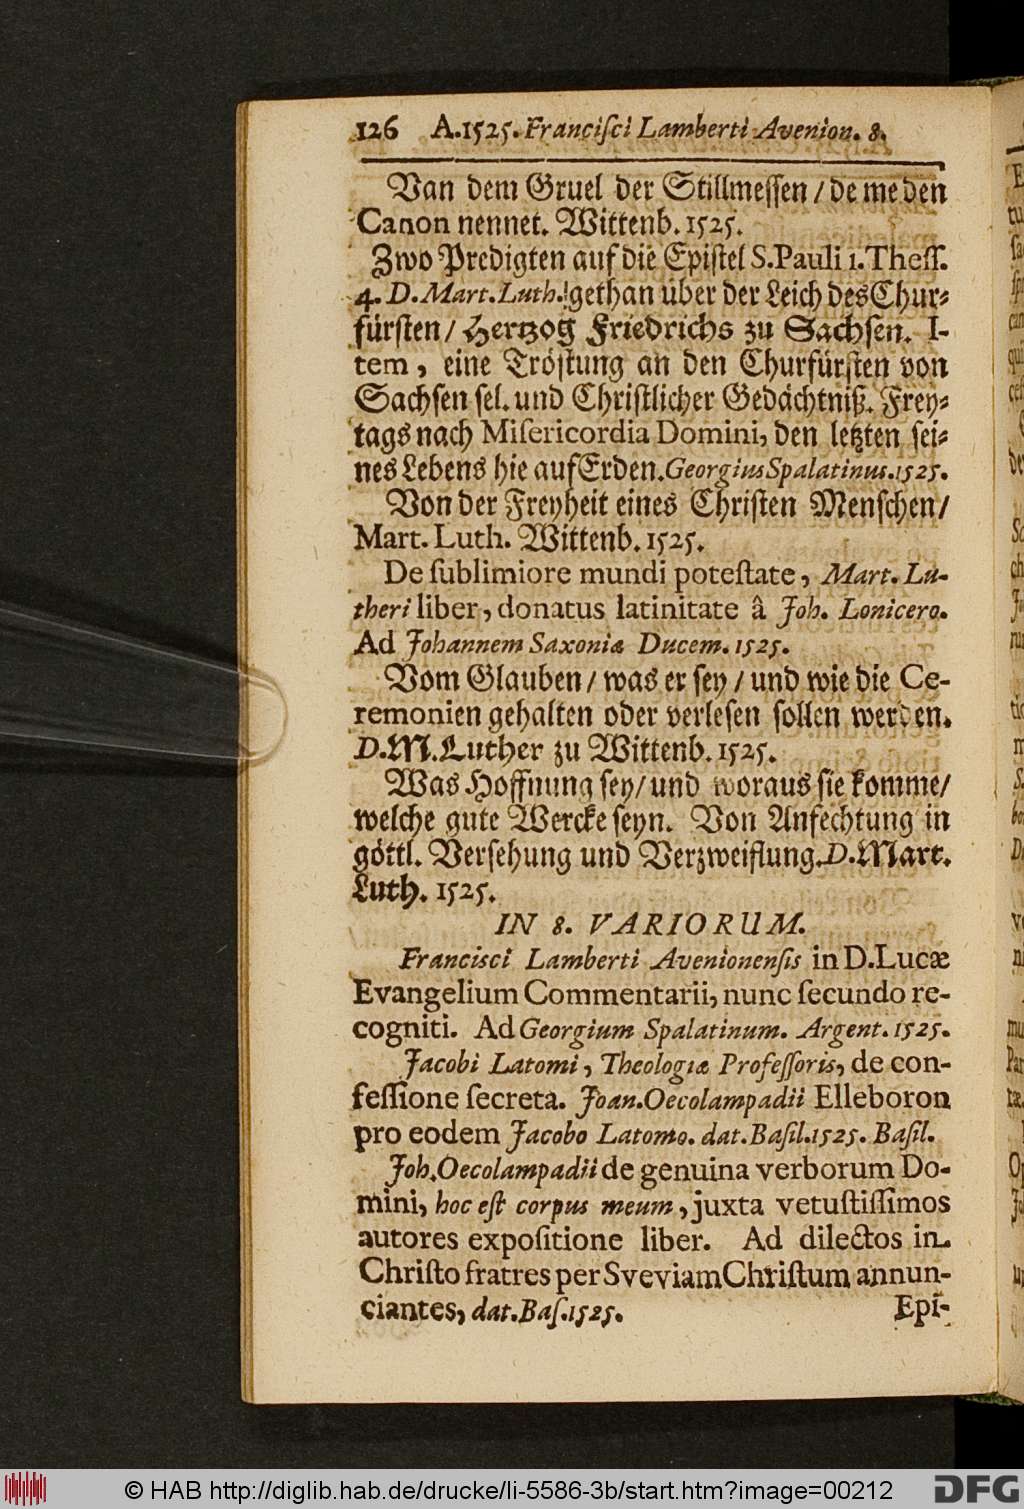 126 A.1525. Franciſci Lamberti Avenion. 8.
Van dem Gruel der Stillmeſſen / de me den
Canon nennet. Wittenb. 1525.
Zwo Predigten auf die Epiſtel S. Pauli 1. Theſſ.
4. D. Mart. Luth. gethan uͤber der Leich des Chur⸗
fuͤrſten / Hertzog Friedrichs zu Sachſen. I-
tem, eine Troͤſtung an den Churfuͤrſten von
Sachſen ſel. und Chriſtlicher Gedaͤchtniß. Frey⸗
tags nach Miſericordia Domini, den letzten ſei⸗
nes Lebens hie auf Erden. Georgius Spalatinus. 1525.
Von der Freyheit eines Chriſten Menſchen /
Mart. Luth. Wittenb. 1525.
De ſublimiore mundi poteſtate, Mart. Lu-
theri liber, donatus latinitate â Joh. Lonicero.
Ad Johannem Saxoniæ Ducem. 1525.
Vom Glauben / was er ſey / und wie die Ce-
remonien gehalten oder verleſen ſollen werden.
D. M. Luther zu Wittenb. 1525.
Was Hoffnung ſey / und woraus ſie komme /
welche gute Wercke ſeyn. Von Anfechtung in
goͤttl. Verſehung und Verzweiflung. D. Mart.
Luth. 1525.
IN 8. VARIORUM.
Francisci Lamberti Avenionenſis in D. Lucæ
Evangelium Commentarii, nunc ſecundo re-
cogniti. Ad Georgium Spalatinum. Argent. 1525.
Jacobi Latomi, Theologiæ Profeſſoris, de con-
feſſione ſecreta. Joan. Oecolampadii Elleboron
pro eodem Jacobo Latomo. dat. Baſil. 1525. Baſil.
Joh. Oecolampadii de genuina verborum Do-
mini, hoc eſt corpus meum, juxta vetuſtiſſimos
autores expoſitione liber. Ad dilectos in
Chriſto fratres per Sveviam Chriſtum annun-
ciantes, dat. Baſ. 1525. Epi-
© HAB http://diglib.hab.de/drucke/li-5586-3b/start.htm?image=00212 DFG